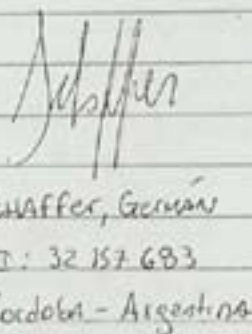 Schaffer
CHAFFER, GERMÁN
I: 32 157 683
ordoba - Argentina